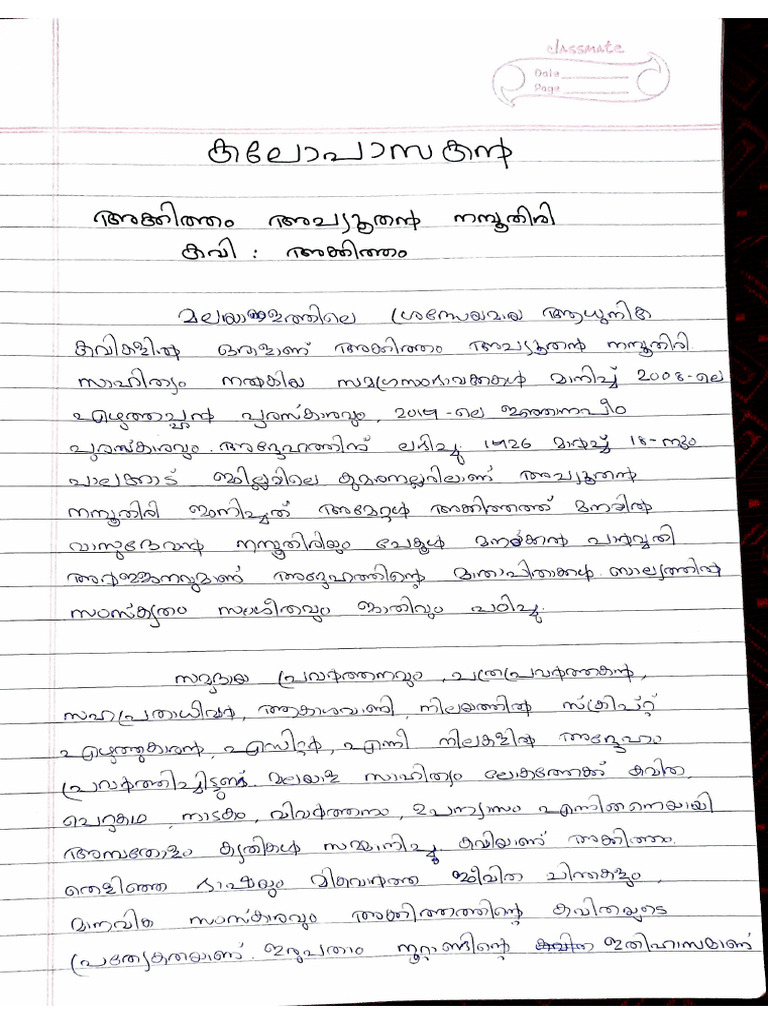 classmate
Date
Page
കലോപാസകൻ
അക്കിത്തം അച്യുതൻ നമ്പൂതിരി
കവി : അക്കിത്തം
മലയാളത്തിലെ ശ്രദ്ധേയമായ ആധുനിക
കവികളിൽ ഒരാളാണ് അക്കിത്തം അച്യുതൻ നമ്പൂതിരി.
സാഹിത്യം നൽകിയ സമഗ്രസംഭാവകൾ മാനിച്ച് 2008-ലെ
എഴുത്തച്ഛൻ പുരസ്കാരവും, 2019-ലെ ജ്ഞാനപീഠ
പുരസ്കാരവും അദ്ദേഹത്തിന് ലഭിച്ചു. 1926 മാർച്ച് 18-നും
പാലക്കാട് ജില്ലയിലെ കുമരനല്ലൂരിലാണ് അച്യുതൻ
നമ്പൂതിരി ജനിച്ചത് അമേറ്റൂർ അക്കിത്തത്ത് മനയിൽ
വാസുദേവൻ നമ്പൂതിരിയും ചേകൂർ മനയ്ക്കൽ പാർവ്വതി
അന്തർജ്ജനവുമാണ് അദ്ദേഹത്തിന്റെ മാതാപിതാക്കൾ. ബാല്യത്തിൽ
സംസ്കൃതം സംഗീതവും ജ്യോതിവും പഠിച്ചു.
സമുദായ പ്രവർത്തനവും, പത്രപ്രവർത്തകൻ,
സഹപത്രാധിപർ, ആകാശവാണി, നിലയത്തിൽ സ്ക്രിപ്റ്റ്
എഴുത്തുകാരൻ, എഡിറ്റർ, എന്നി നിലകളിൽ അദ്ദേഹം
പ്രവർത്തിച്ചിട്ടുണ്ട്. മലയാള സാഹിത്യം ലോകത്തേക്ക് കവിത,
ചെറുകഥ, നാടകം, വിവർത്തനം, ഉപന്യാസം എന്നിങ്ങനെയായി
അമ്പതോളം കൃതികൾ സമ്മാനിച്ചു കവിയാണ് അക്കിത്തം.
തെളിഞ്ഞ ഭാഷയും മികവാർത്ത ജീവിത ചിന്തകളും,
മാനവിക സംസ്കാരവും അക്കിത്തത്തിന്റെ കവിതയുടെ
പ്രത്യേകതയാണ്. ഇരുപതാം നൂറ്റാണ്ടിന്റെ ഇതിഹാസമാണ്